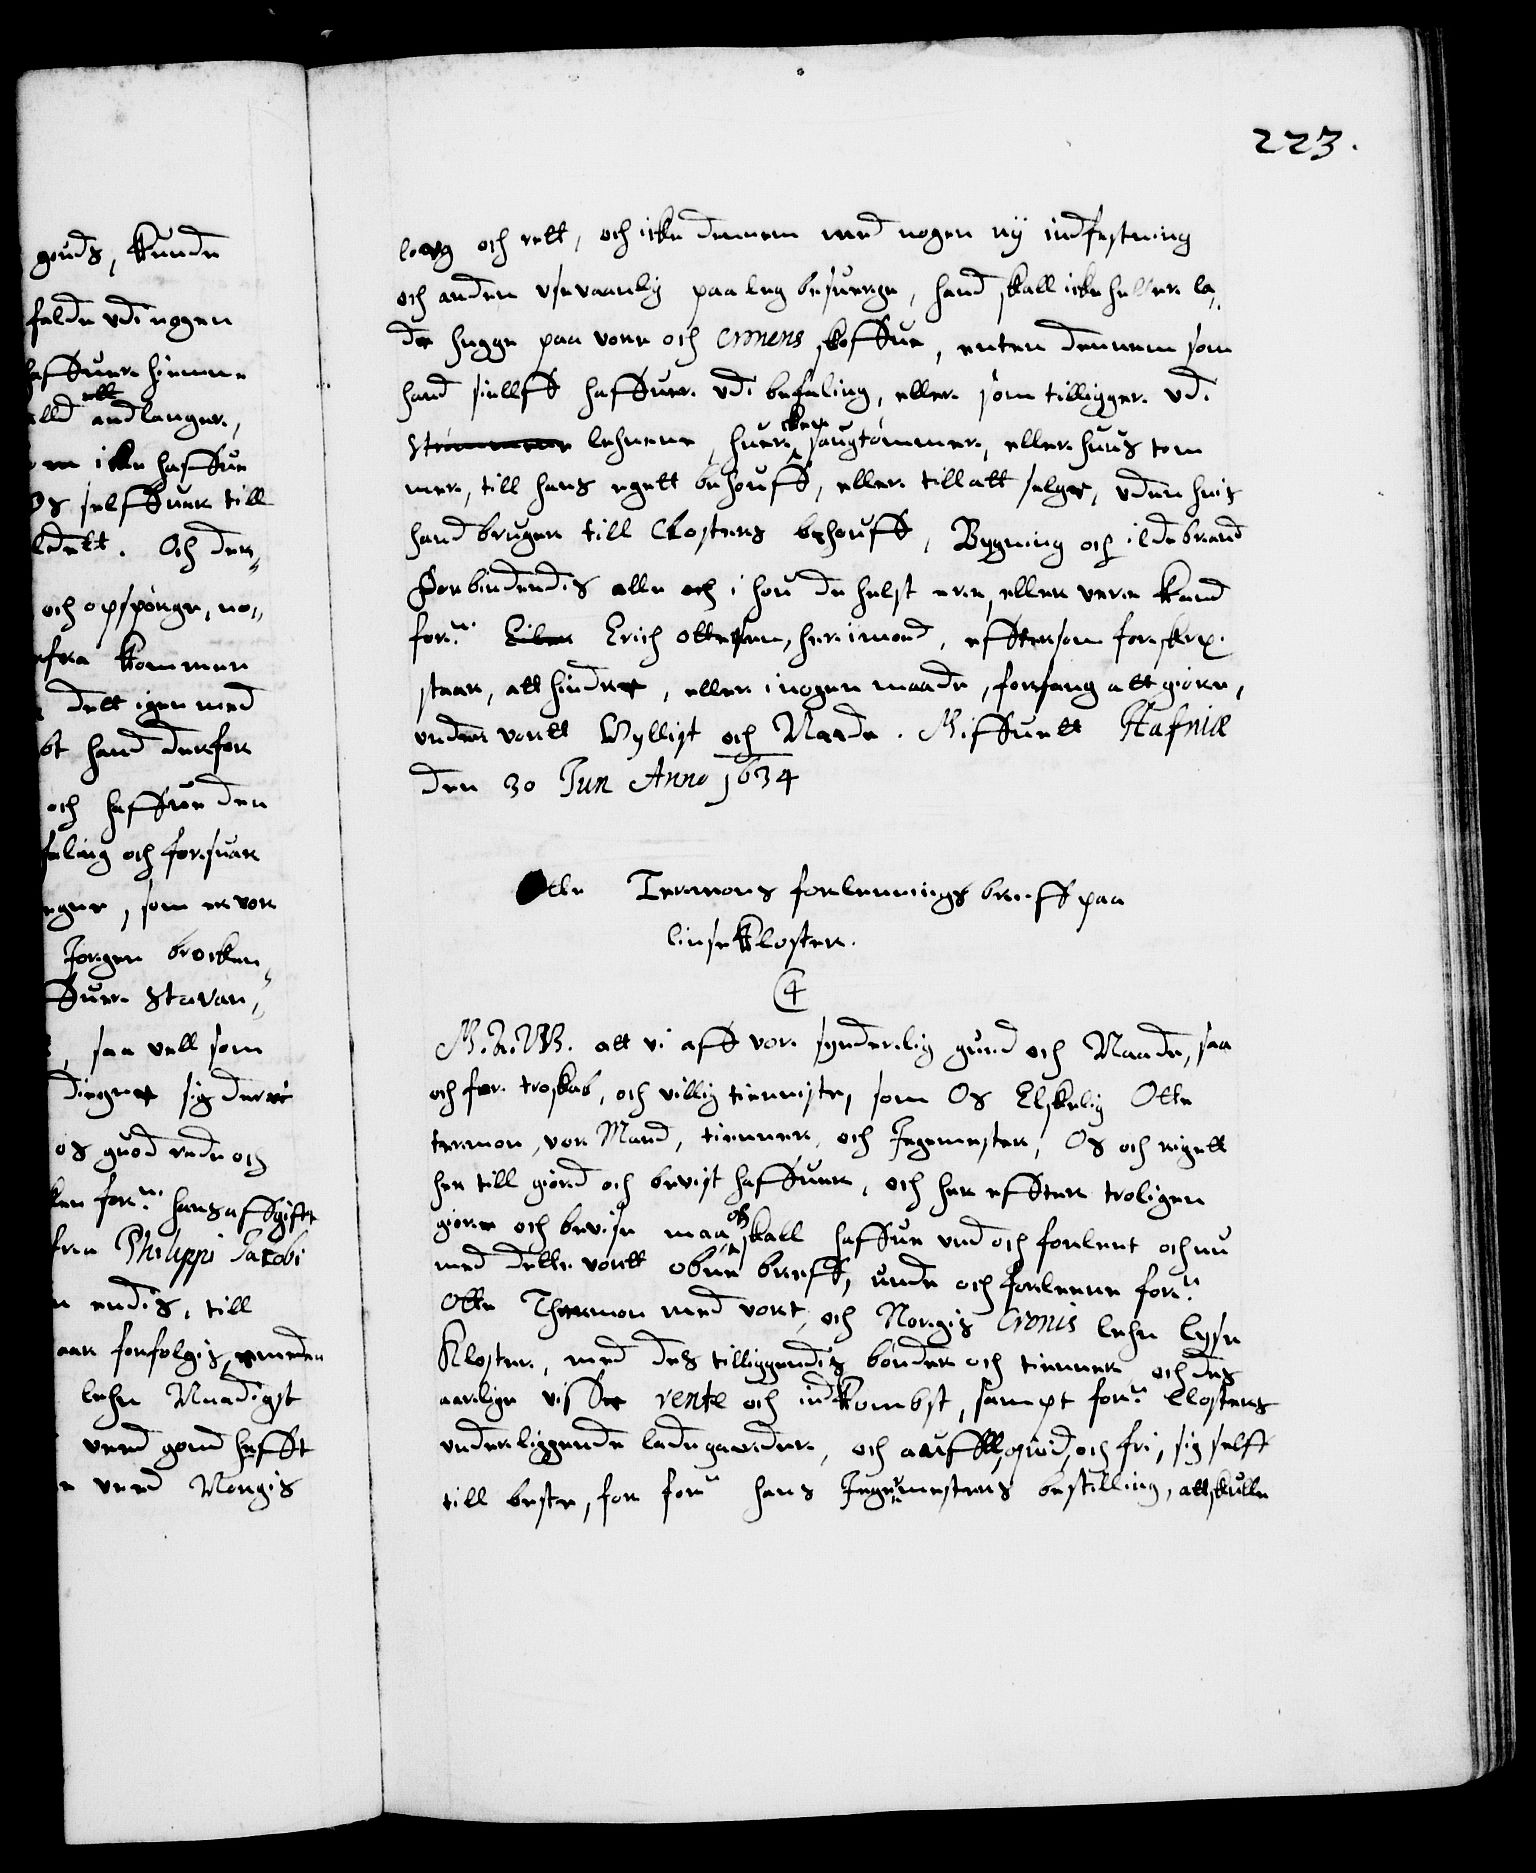 223.
gouds, kunde
falde udi nogen
haffuer hiemme
ell
andlanger,
icke haffue
Os selffuer till
Och der„
och opspørge, no„
fra kommer
dett igen med
hand derfor
och haffue den
faling och forsuar
som er vor
Jørgen brocken„
ffuer Stavan„
, saa vell som
sig der
os guod rede och
for:ne hans affgifft
fra Philippi Jacobi
endis, till
aar forfølgis, emeden
lehn Naadigst
ved goud hefft
ved Norgis
low och rett, och icke dennem med nogen ny indfestning
och anden usevaanlig paaleg besuerge, hand skall icke heller la„
de hugge paa vore och Cronens skoffue, enten dennem som
hand siellff haffuer udi befaling, eller som tilligger udi
Strømmene lehnene, huer cken saugtømmer, eller huus tøm
mer, till hans egett behouff, eller till att selge, uden huis
hand bruger till Closters behouff, Bygning och ildebrand
Forbiudendis alle och i huo de helst ere, eller vere kand
for:ne Eiler Erich Ottesen, her imod, effterson forskr:
staar, att hindre, eller i nogen maade, forfang att giøre,
under vortt Hyllist och Naade. Giffuett Hafniæ
den 30 Jun Anno 1634
Otte Termons forlenings breff paa
Linse Kloster.
4
G. A. W. att vi aff vor synderlig gunst och Naade, saa
och for troskab, och villig tienniste, som Os Elskelig Otte
termon, vor Mand, tienner, och Jegemester, Os och rigett
her till giord och bevist haffuer, och her effter troligen
giøre och bevise maa och skall haffue und och forlent och nu
med dette vortt obne breff, unde och forlenne for:ne
Otte Thermon med vort och Norgis Cronis lehn Lyse
Kloster, med des tilliggendis bønder och tienner och des
aarlige visse rente och indkombst, sampt for:ne Closters
underliggende ladegaarder, och auffll, quid, och fri, sig selff
till beste, for for:ne hans Jegemesters bestilling, att skulle